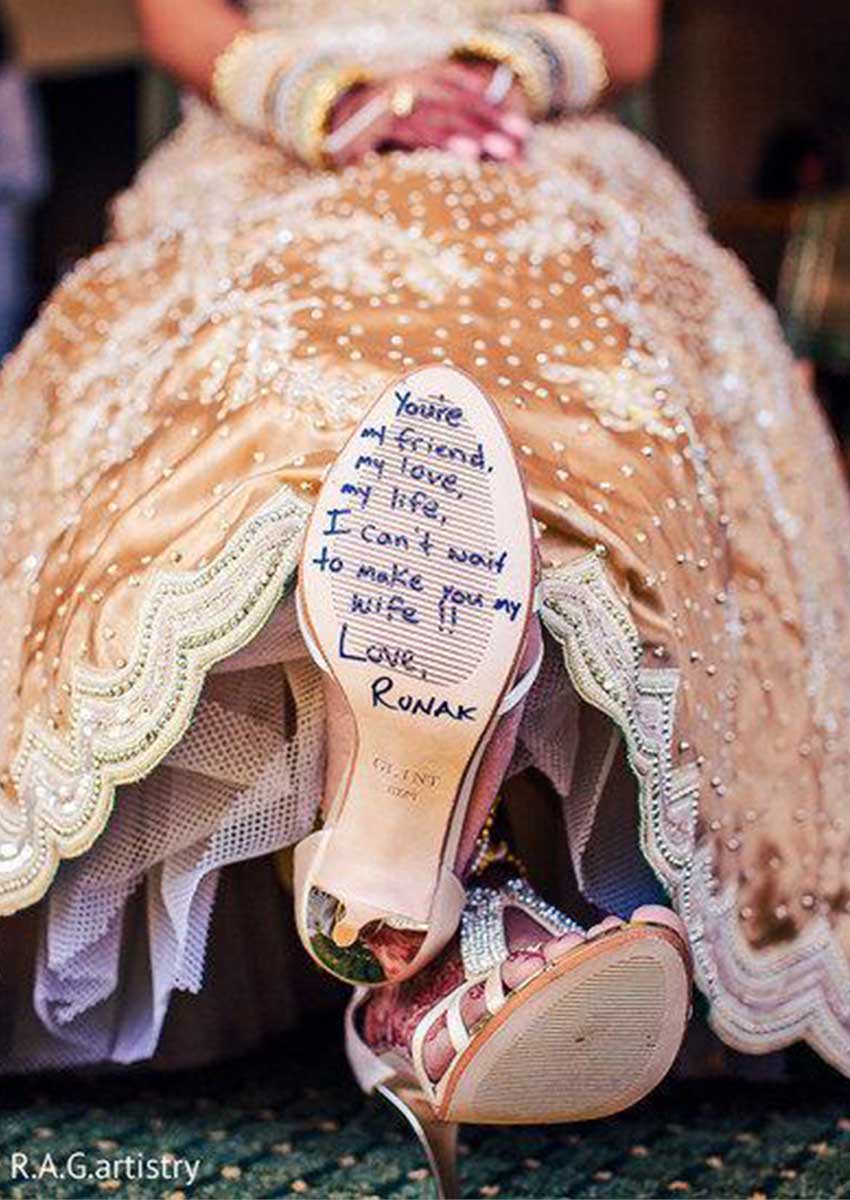 You're
my friend,
my love,
my life,
I can't wait
to make you my
wife !!
Love,
RONAK
GLINT
R.A.G.artistry